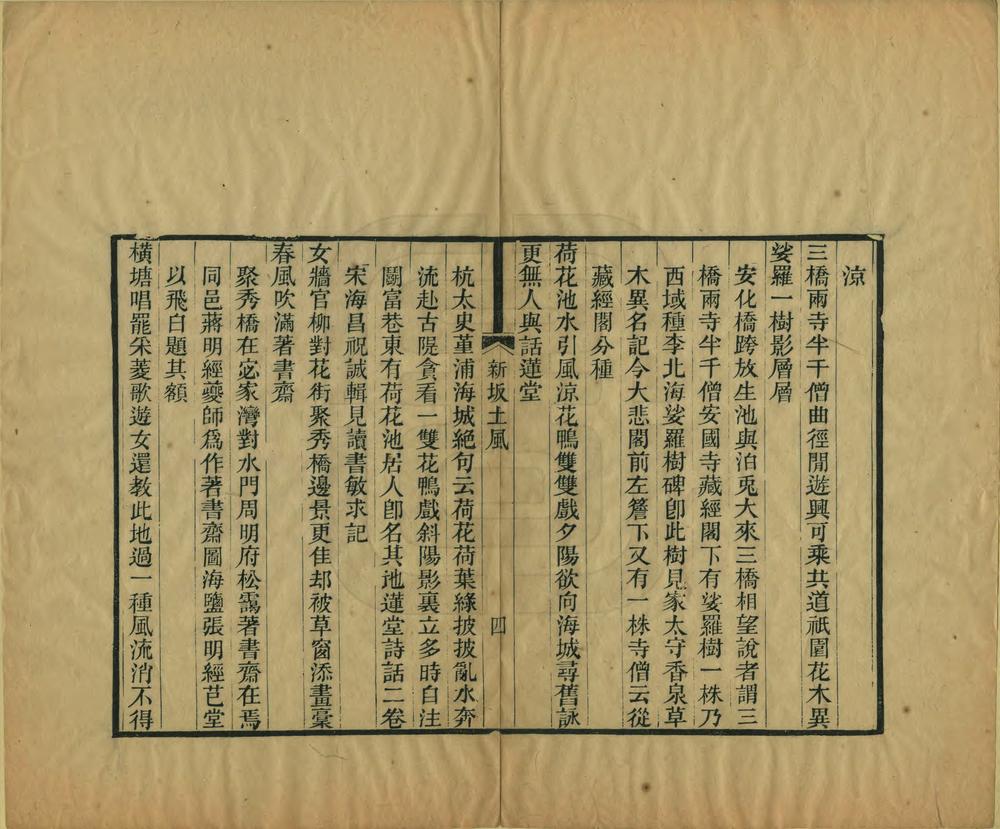 涼
三橋兩寺半千僧曲徑閒遊興可乘共道祇園花木異
娑羅一樹影層層
安化橋跨放生池與泊兎大來三橋相望說者謂三
橋兩寺半千僧安國寺藏經閣下有娑羅樹一株乃
西域種李北海娑羅樹碑卽此樹見家太守香泉草
木異名記今大悲閣前左簷下又有一株寺僧云從
藏經閣分種
荷花池水引風涼花鴨雙雙戲夕陽欲向海城尋舊詠
更無人與話蓮堂
杭太史堇浦海城絕句云荷花荷葉綠披披亂水奔
流赴古隄貪看一雙花鴨戲斜陽影裏立多時自注
關富巷東有荷花池居人卽名其地蓮堂詩話二卷
宋海昌祝誠輯見讀書敏求記
女牆官柳對花街聚秀橋邊景更佳却被草窗添畫稾
春風吹滿著書齋
聚秀橋在宓家灣對水門周明府松靄著書齋在焉
同邑蔣明經夔師爲作著書齋圖海鹽張明經芑堂
以飛白題其額
橫塘唱罷采菱歌遊女還教此地過一種風流消不得
新坂土風
四